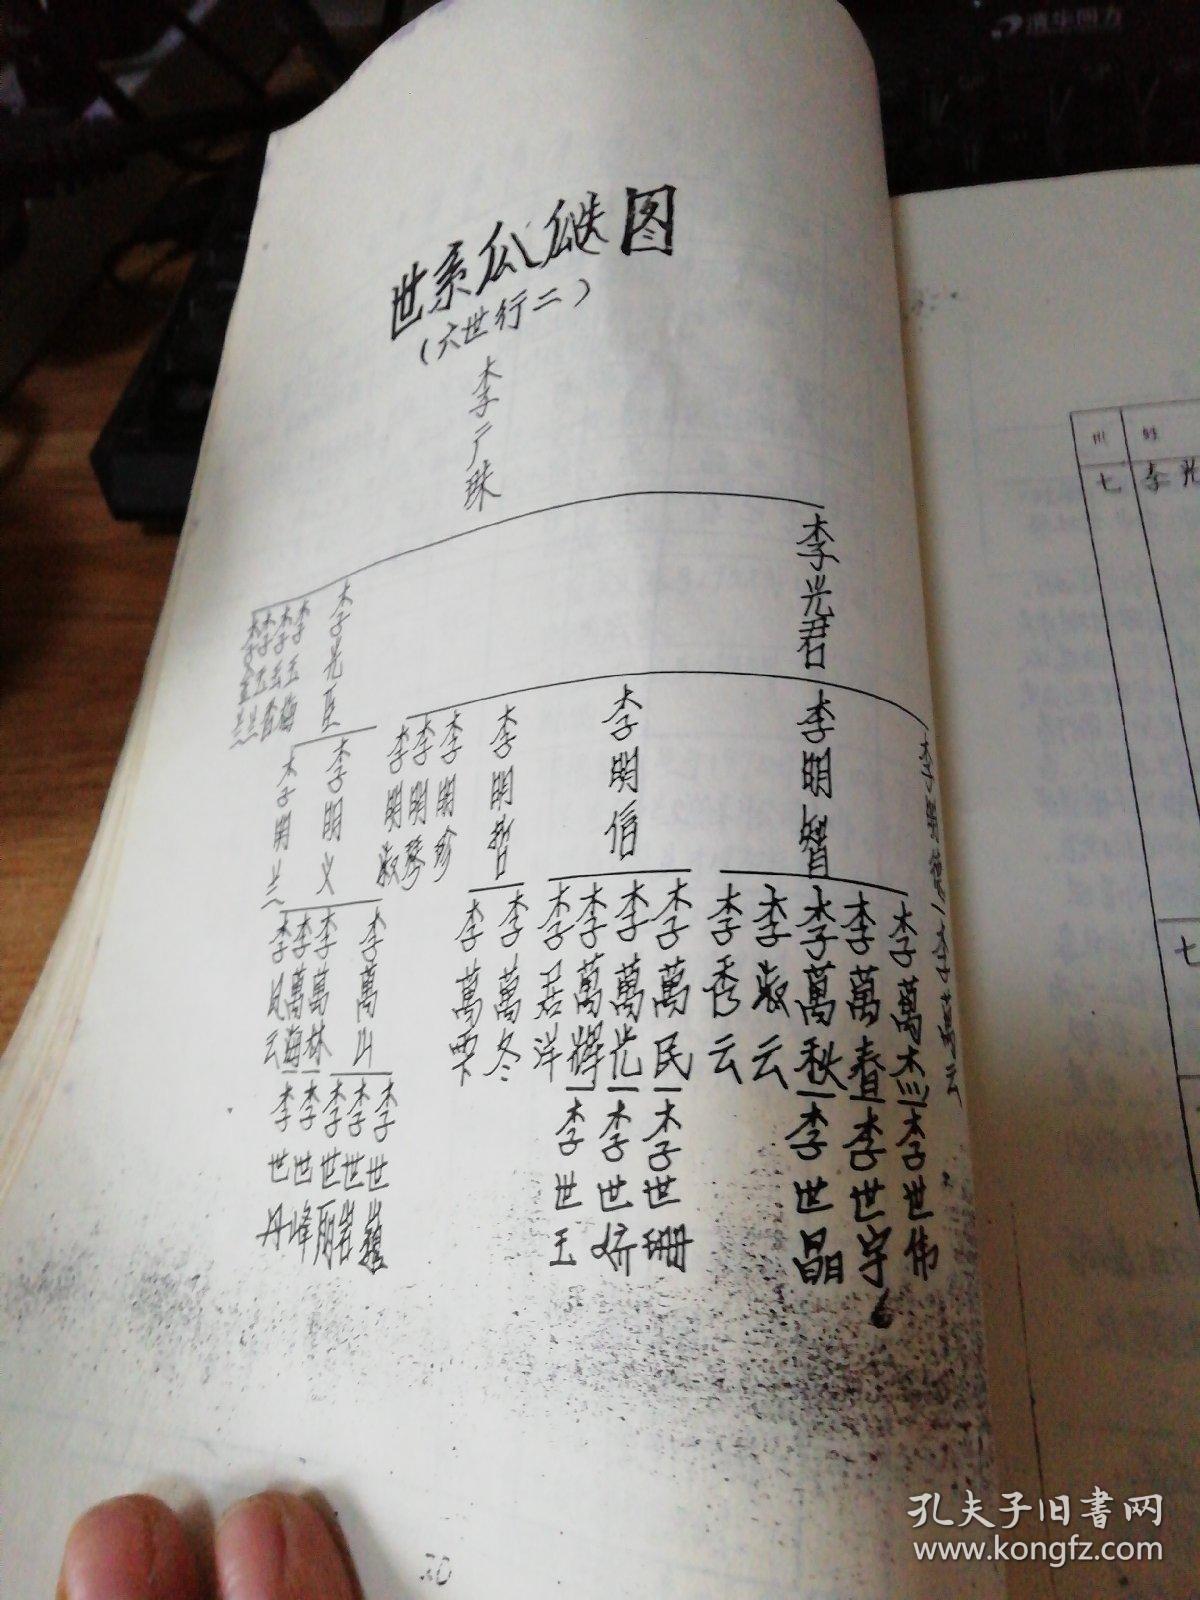 世系瓜瓞图
(六世行二)
李广珠
李光君
李光臣
李明智
李明信
李明哲
李明珍
李明琴
李明淑
李明义
李明兰
李萬杰
李萬春
李萬秋
李淑云
李秀云
李萬民
李萬光
李萬輝
李萬冬
李萬山
李萬林
李萬海
李凤云
李世伟
李世宇
李世晶
李世珊
李世娇
李世玉
李世巍
李世岩
李世丽
李世峰
李世丹
20
世
姓
七
李光
七
孔夫子旧书网
www.kongfz.com